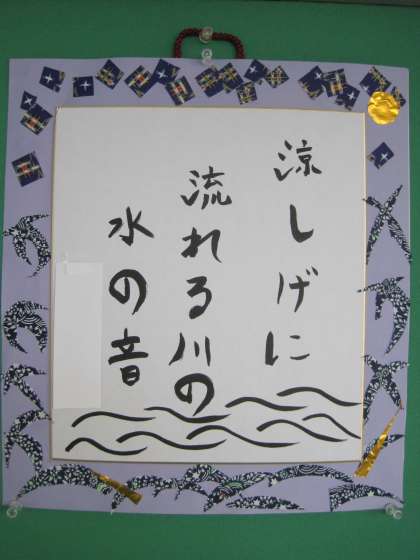 涼しげに
流れる川の
水の音